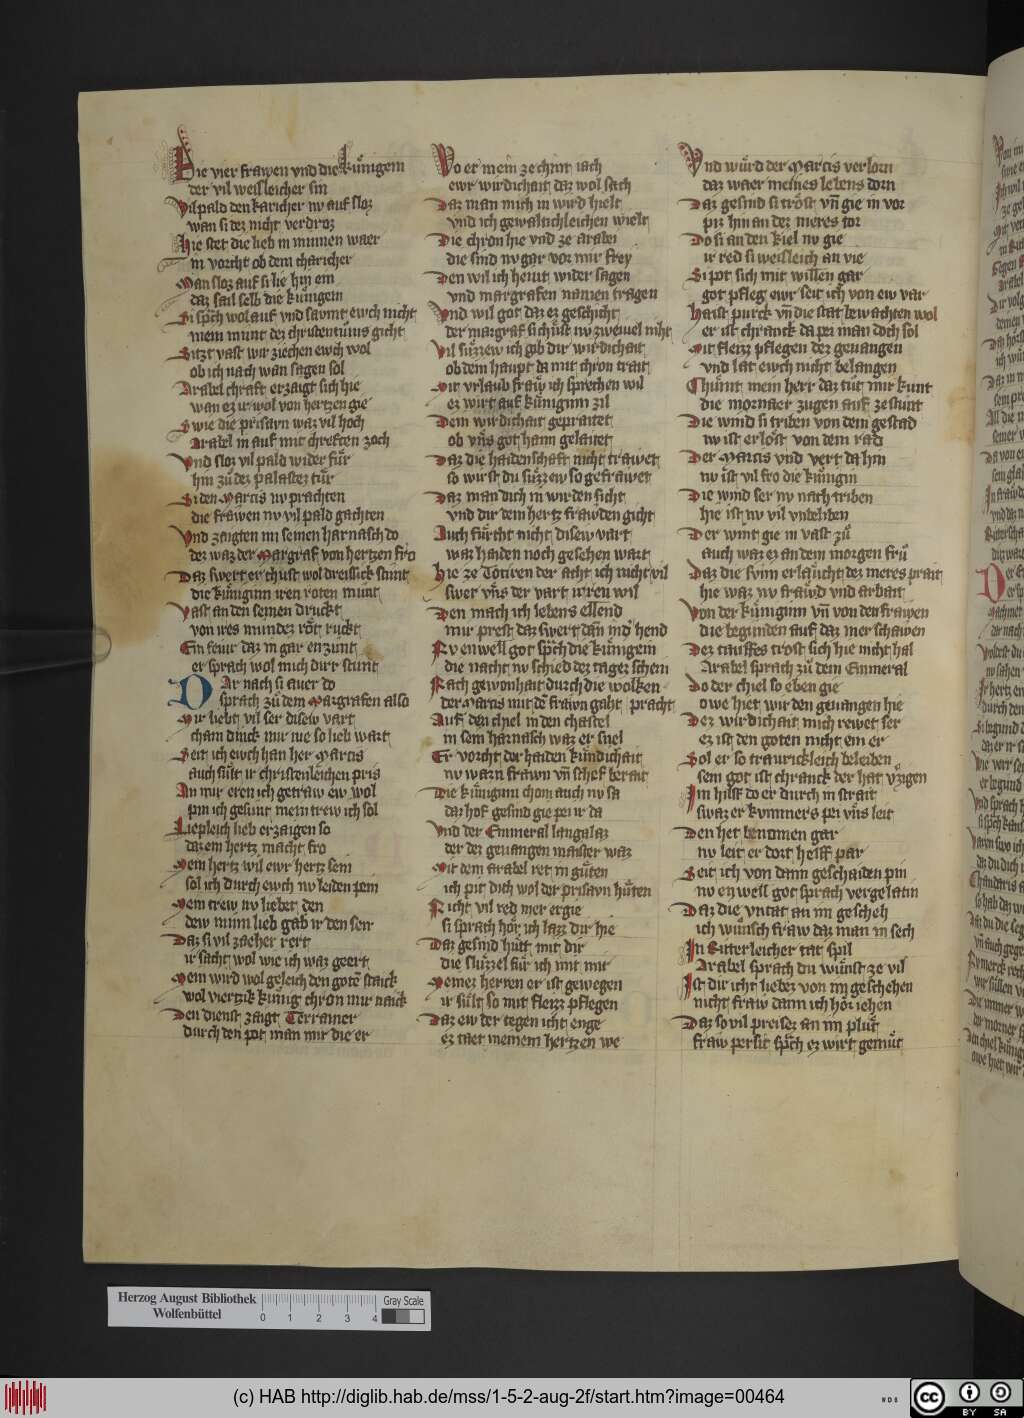 Die vier frawen vnd die kuͤnigein
der vil weisleicher sin
Vil pald den karicher nv auf sloz
wan si dez nicht verdroz
Hie stet die lieb in minnen waer
in vorcht ob dem charicher
Man sloz auf si lie hin ein
daz sail selb die kuͤnigein
Si spͣch wol auf vnd savmt ewch nicht
mein munt dez christentuͤms gicht
Sitzt vast wir ziechen ewch wol
ob ich nach wan sagen sol
Arabel chraft erzaigt sich hie
wan ez ir wol von hertzen gie
Swie die prisavn waz vil hoch
Arabel in auf mit chreften zoch
Vnd sloz vil pald wider fuͤr
hin zuͦ dez palastez tuͤr
Si den Marcis nv prachten
die frawen nv vil pald gachten
Vnd zaigten im seinen harnasch do
dez waz der Margraf von hertzen fro
Daz swert er chust wol dreissick stunt
die kuͤniginn iren roten munt
Vast an den seinen druckt
von ires mundez roͤt ruckt
Ein fewr daz in gar enzunt
er sprach wol mich dirr stunt
DAr nach si auer do
sprach zuͦ dem Margrafen also
Mir liebt vil ser disew vart
cham dinck mir nie so lieb wart
Seit ich ewch han her Marcis
auch suͤlt ir christenleichen pris
An mir eren ich getraw ew wol
pin ich gesunt mein trew ich sol
Liepleich lieb erzaigen so
daz ein hertz macht fro
Mein hertz wil ewr hertz sein
sol ich durch ewch nv leiden pein
Mein trew nv liebet den
dew minn lieb gab ir den sen
Daz si vil zaeher rert
ir sacht wol wie ich waz geert
Mein wird wol geleich den gotē starck
wol viertzik kuͤnig chron mir naick
Den dienst zaigt Terramer
durch den pot man mir die er
Wo er mein zechint iach
ewr wirdichait daz wol sach
Daz man mich in wird hielt
vnd ich gewaltichleichen wielt
Die chron hie vnd ze arabei
die sind nv gar vor mir frey
Den wil ich hewt wider sagen
vnd margrafen namen tragen
Vnd wil got daz ez geschicht
der margraf sich ust nv zweiuel niht
Vil suͤzzew ich gib dir wirdichait
ob dem haupt da mit chron trait
Mit vrlaub fraw ich sprechen wil
ez wirt auf kuͤniginn zil
Dein wirdichait gepraitet
ob vns got hann gelaitet
Daz die haidenschaft nicht trawet
so wirst du suͤzzew so gefrawet
Daz man dich in wirden sicht
vnd dir dein hertz frawden gicht
Auch fuͤrcht nicht disew vart
waz haiden noch gesehen wart
Hie ze Totiren der acht ich nicht vil
swer vns der vart irren wil
Den mach ich lebens ellend
mir prest daz swert dañ in dͣ hend
Nv enwell got spͣch die kuͤnigein
die nacht nv schied dez tagez schein
Nach gewonhait durch die wolken
der Marcis mit dē frawn gaht pracht
Auf den chiel in den chastel
in sein harnasch waz er snel
Er vorcht dor haiden kundichait
nv warn frawn vñ schef berait
Die kuͤniginn chom auch nv sa
daz hof gesind gie pei ir da
Vnd der Emmeral langalaz
der dez geuangen maister waz
Mit dem arabel ret in guͤten
ich pit dich wol der prisavn huͤten
Nicht vil red mer ergie
si sprach hoͤr ich lazz dir hie
Daz gesind huͤtt mit dir
die sluͤzzel fuͤr ich mit mir
Meinez herren er ist gewegen
ir suͤlt so mit fleizz pflegen
Daz ew der tegen icht enge
ez taet meinem hertzen we
Vnd wuͤrd der Marcis verlorn
daz waer meines lebens dorn
Daz gesind si trost vñ gie in vor
piz hin an dez meres tor
Do si an den kiel nv gie
ir red si weisleich an vie
Si pot sich mit willen gar
got pfleg ewr seit ich von ew var
Haist purck vñ die stat bewachten wol
er ist chranck da pei man doch sol
Mit fleizz pflegen dez geuangen
vnd lat ewch nicht belangen
Chuͤmt mein herr daz tuͦt mir kunt
die mornaer zugen auf ze stunt
Die wind si triben von dem gestad
nv ist erlost von dem rad
Der Marcis vnd vert da hin
nv ist vil fro die kuͤnigin
Die wind ser nv nach triben
hie ist nv vil vnbeliben
Der wint gie in vast zuͦ
auch waz ez an dem morgen fruͦ
Daz die svnn erlaucht dez meres prait
hie waz nv frawd vnd arbait
Von der kuͤniginn vñ von den frawen
die begunden auf daz mer schawen
Dez tauffes trost sich hie nicht hal
Arabel sprach zuͦ dem Emmeral
Do der chiel so eben gie
owe hiet wir den geuangen hie
Dez wirdichait mich rewet ser
ez ist den goten nicht ein er
Sol er so traurickleich beleiben
sein got ist chranck der hat vͤzigen
Im hilff do er durch in strait
swaz er kvmmers pei vns leit
Den het benomen gar
nv leit er dort helff par
Seit ich von dann geschaiden pin
nv enwell got sprach vergelatin
Daz die vntat an im gescheh
ich wunsch fraw daz man in sech
In Ritterleicher tat spil
Arabel sprach du wuͤnst ze vil
Ist dir icht liebez von im geschehen
nicht fraw dann ich hoͤr iehen
Daz so vil preisez an im pluͤt
fraw persit spͣch ez wirt gemuͤt
Herzog August Bibliothek
Wolfenbüttel
0 1 2 3 4
Gray Scale
(c) HAB http://diglib.hab.de/mss/1-5-2-aug-2f/start.htm?image=00464
WDB
cc BY SA